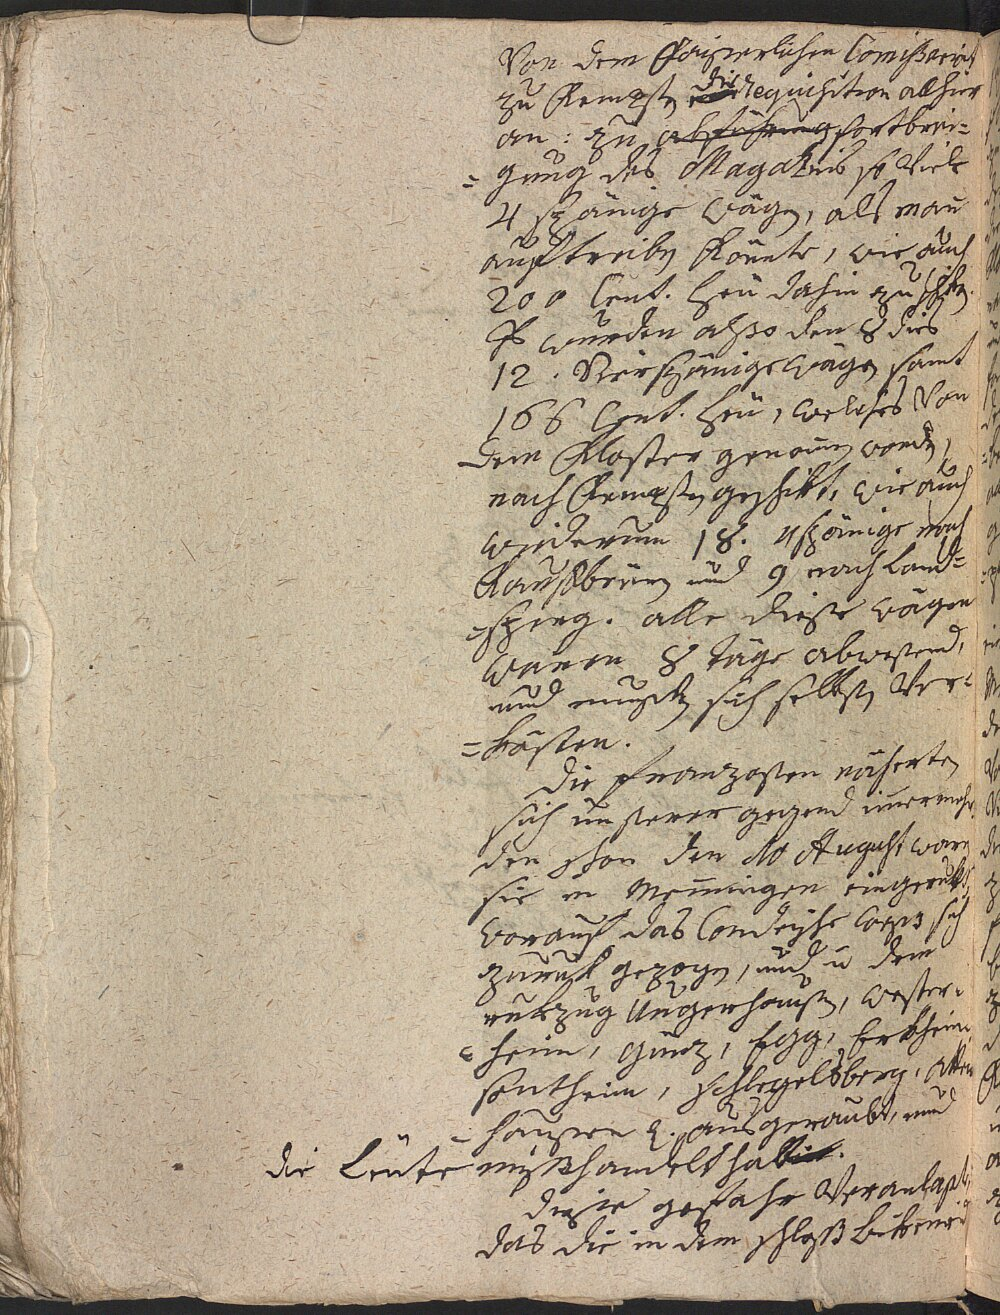 Von dem Kaiserlichen Comißariat
zu Kempten die requisition alhier
an: zu abführung fortbrin=
=gung des Magazins so viele
4 spänige Wägen, als man
auftreiben könnte, wie auch
200 Cent. Heu dahin zu schiken.
Es wurden also den 8 dies
12. Vierspänige Wägen samt
166 Cent. Heu, welches von
dem Kloster genomen worden,
nach Kempten geschikt, wie auch
wiederum 18. 4spänige nach
Kaufbeuren und 9 nach Land=
=sperg. alle diese Wägen
waren 8 täge abwesend,
und musten sich selbsten ver=
=kösten.
Die Franzosen näherten
sich unserer gegend
den schon den 10 August waren
sie in Memingen eingerukt,
worauf das Condeische Corps sich
zuruk gezogen, und in dem
rukzug Ungerhausen, Wester=
=heim, Günz, Egg, Erkheim
sontheim, Schlegelsberg, Atten
=hausen ausgeraubt, und
die Leüte mißhandelt
diese gefahr veranlaste,
das die in dem schloß